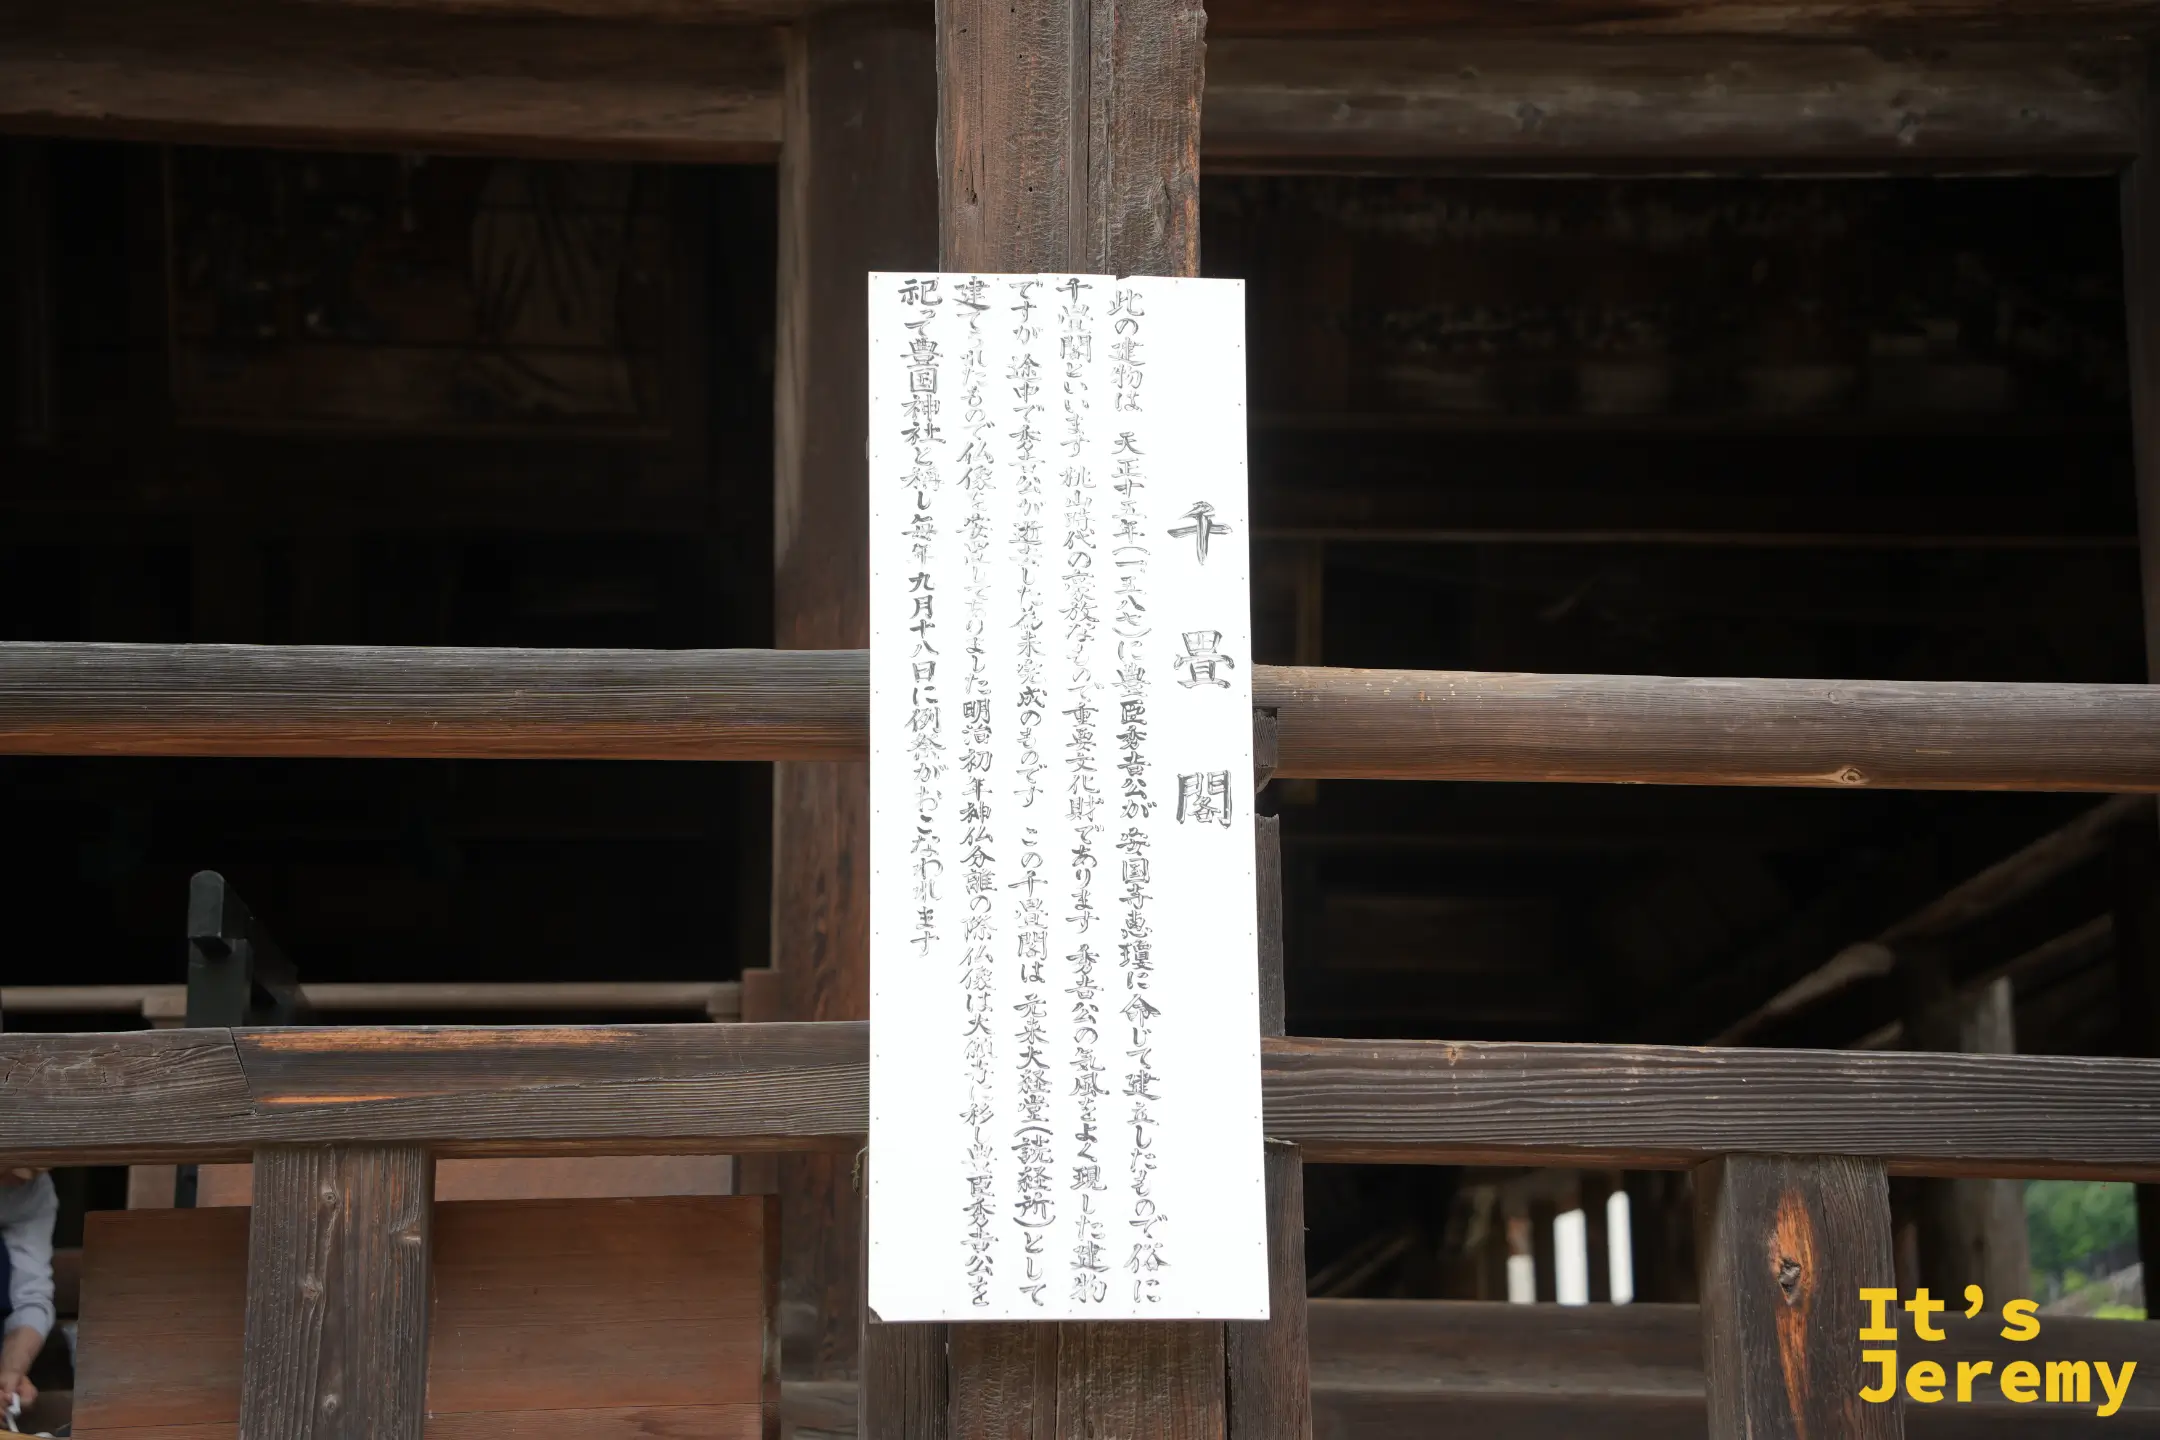 千畳閣
此の建物は 天正十五年(一五八七)に豊臣秀吉公が 安国寺恵瓊に命じて建立したもので俗に
千畳閣といいます 桃山時代の豪放なもので重要文化財であります 秀吉公の気風をよく現した建物
ですが 途中で秀吉公が逝去した為未完成のものです この千畳閣は 元来大経堂(読経所)として
建てられたもので仏像を安置してありました明治初年神仏分離の際仏像は大願寺に移し豊臣秀吉公を
祀って豊国神社と称し毎年九月十八日に例祭がおこなわれます
It's
Jeremy